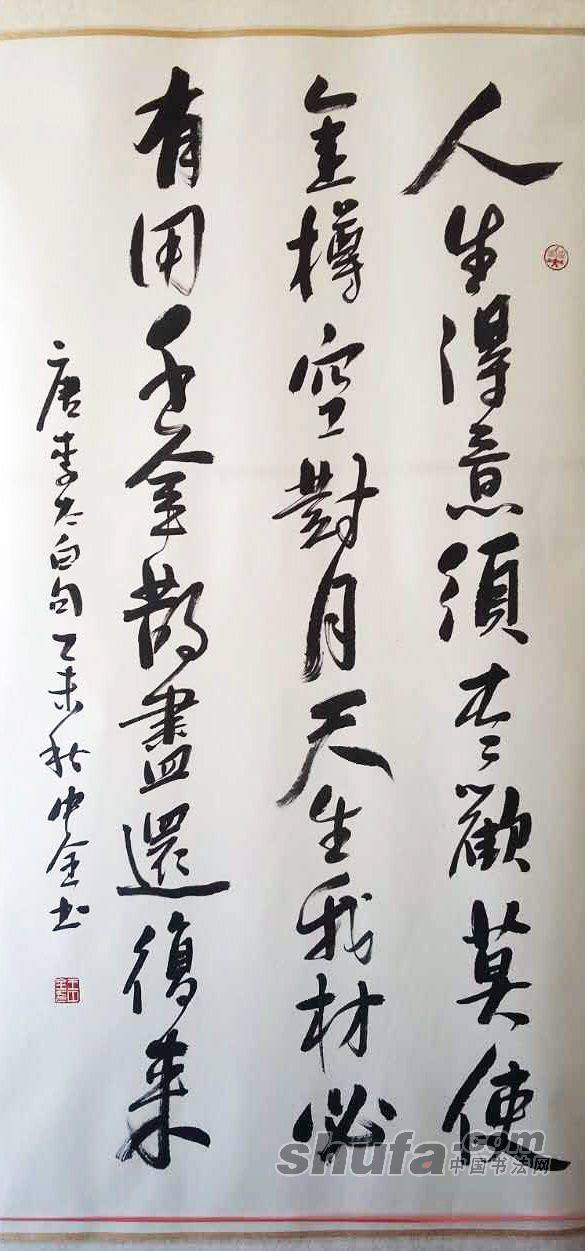 人生得意須盡歡莫使
金樽空對月天生我材必
有用千金散盡還復來
唐李太白句乙未秋中金書
shufa.com
中国书法网